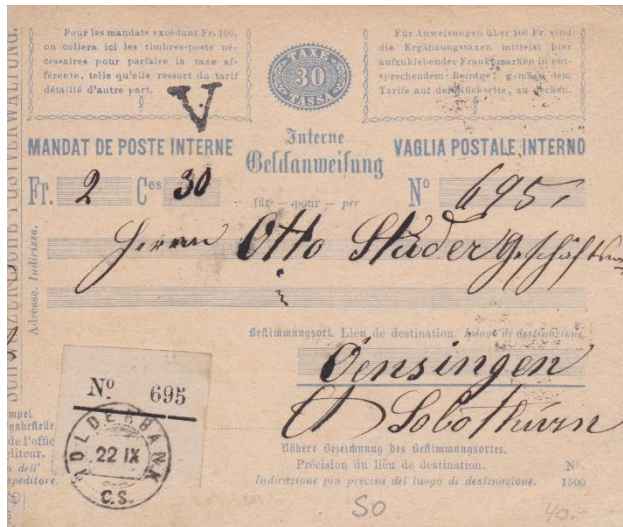 Pour les mandats excédant Fr. 100,
on collera ici les timbres-poste né-
cessaires pour parfaire la taxe af-
férente, telle qu'elle ressort du tarif
détaillé d'autre part.
TAXE
30
TASSA
Für Anweisungen über 100 Fr. sind
die Ergänzungstaxen mittelst hier
aufzuklebender Frankomarken in ent-
sprechendem Betrage, gemäss dem
Tarife auf der Rückseite, zu decken.
V
MANDAT DE POSTE INTERNE
Interne
Geldanweisung
VAGLIA POSTALE INTERNO
Fr. 2 Ces 30
für — pour — per
Nº 695
Adresse. Indirizzo.
Herrn Otto Studer
Bestimmungsort. Lieu de destination. Luogo di destinazione.
Oensingen
Ct Solothurn
Nº 695
HOLDERBANK
22 IX
C.S.
Nähere Bezeichnung des Bestimmungsortes.
Précision du lieu de destination.
Indicazione più precisa del luogo di destinazione.
Nº.
1500
SO